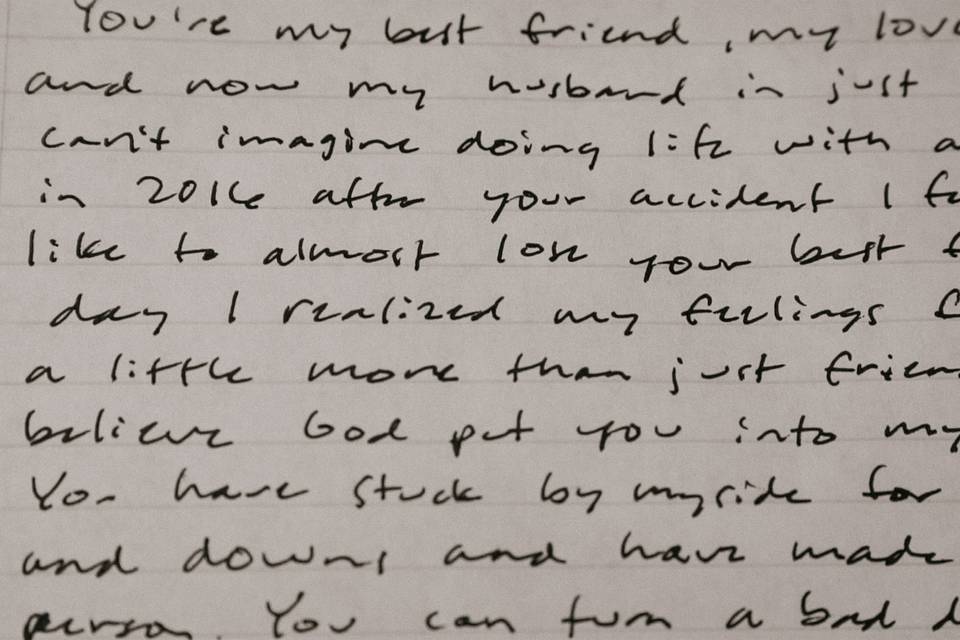 You're my best friend, my love
and now my husband in just
can't imagine doing life with a
in 2016 after your accident I f
like to almost lose your best f
day I realized my feelings f
a little more than just frien
believe God put you into my
You have stuck by my side for
and downs and have made
person. You can turn a bad d